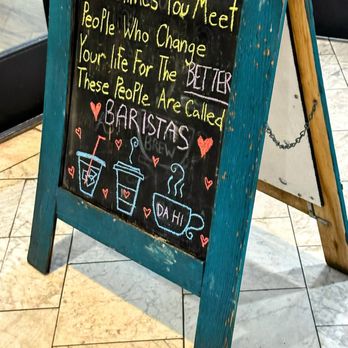 You Meet
People Who Change
Your life For The BETTER
These People Are Called
BARISTAS
BREW
DA HI